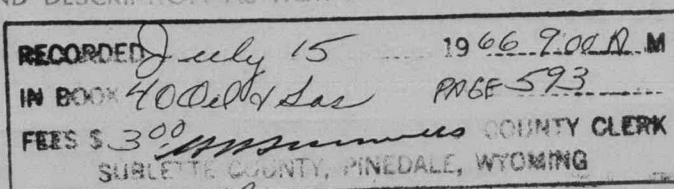 AND DESCRIPTION AS
RECORDED July 15 1966 9:00 A M
IN BOOK 40 Oil & Gas PAGE 593
FEES $ 3 00 COUNTY CLERK
SUBLETTE COUNTY, PINEDALE, WYOMING